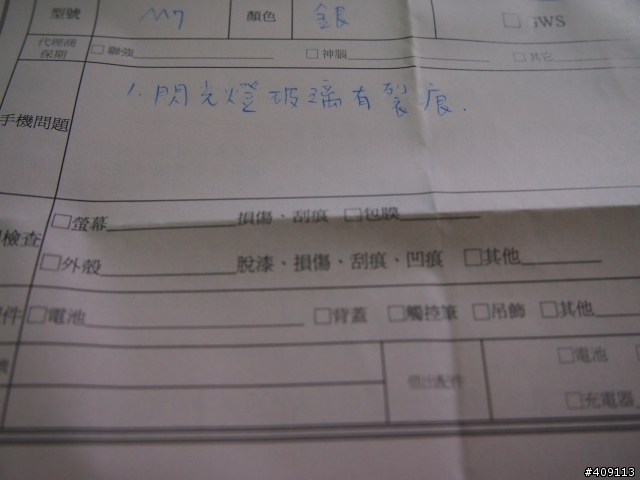 型號 M7 顏色 銀 □ iWS
代理商保期 □聯強 □神腦 □其它
手機問題 1. 閃光燈玻璃有裂痕.
檢查 □螢幕 損傷、刮痕 □包膜
□外殼 脫漆、損傷、刮痕、凹痕 □其他
件 □電池 □背蓋 □觸控筆 □吊飾 □其他
機 借出配件 □電池
□充電器
#409113